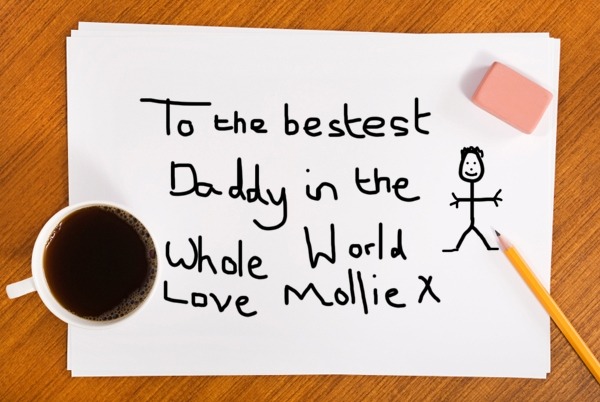 To the bestest
Daddy in the
Whole World
Love Mollie X